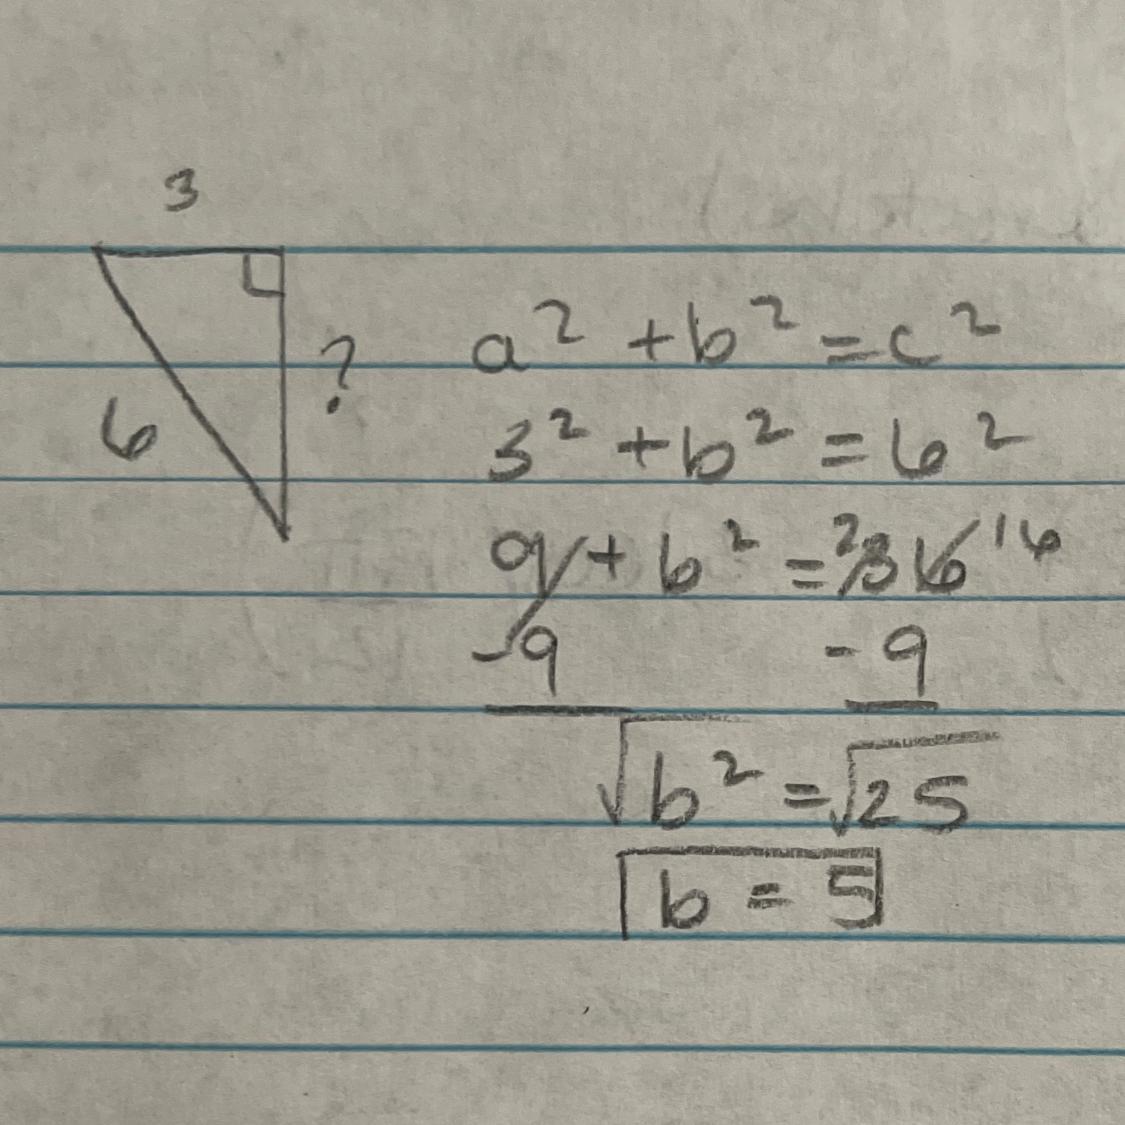 3
6
?
a² + b² = c²
3² + b² = 6²
9 + b² = ²36 ¹⁶
-9 -9
√b² = √25
b = 5